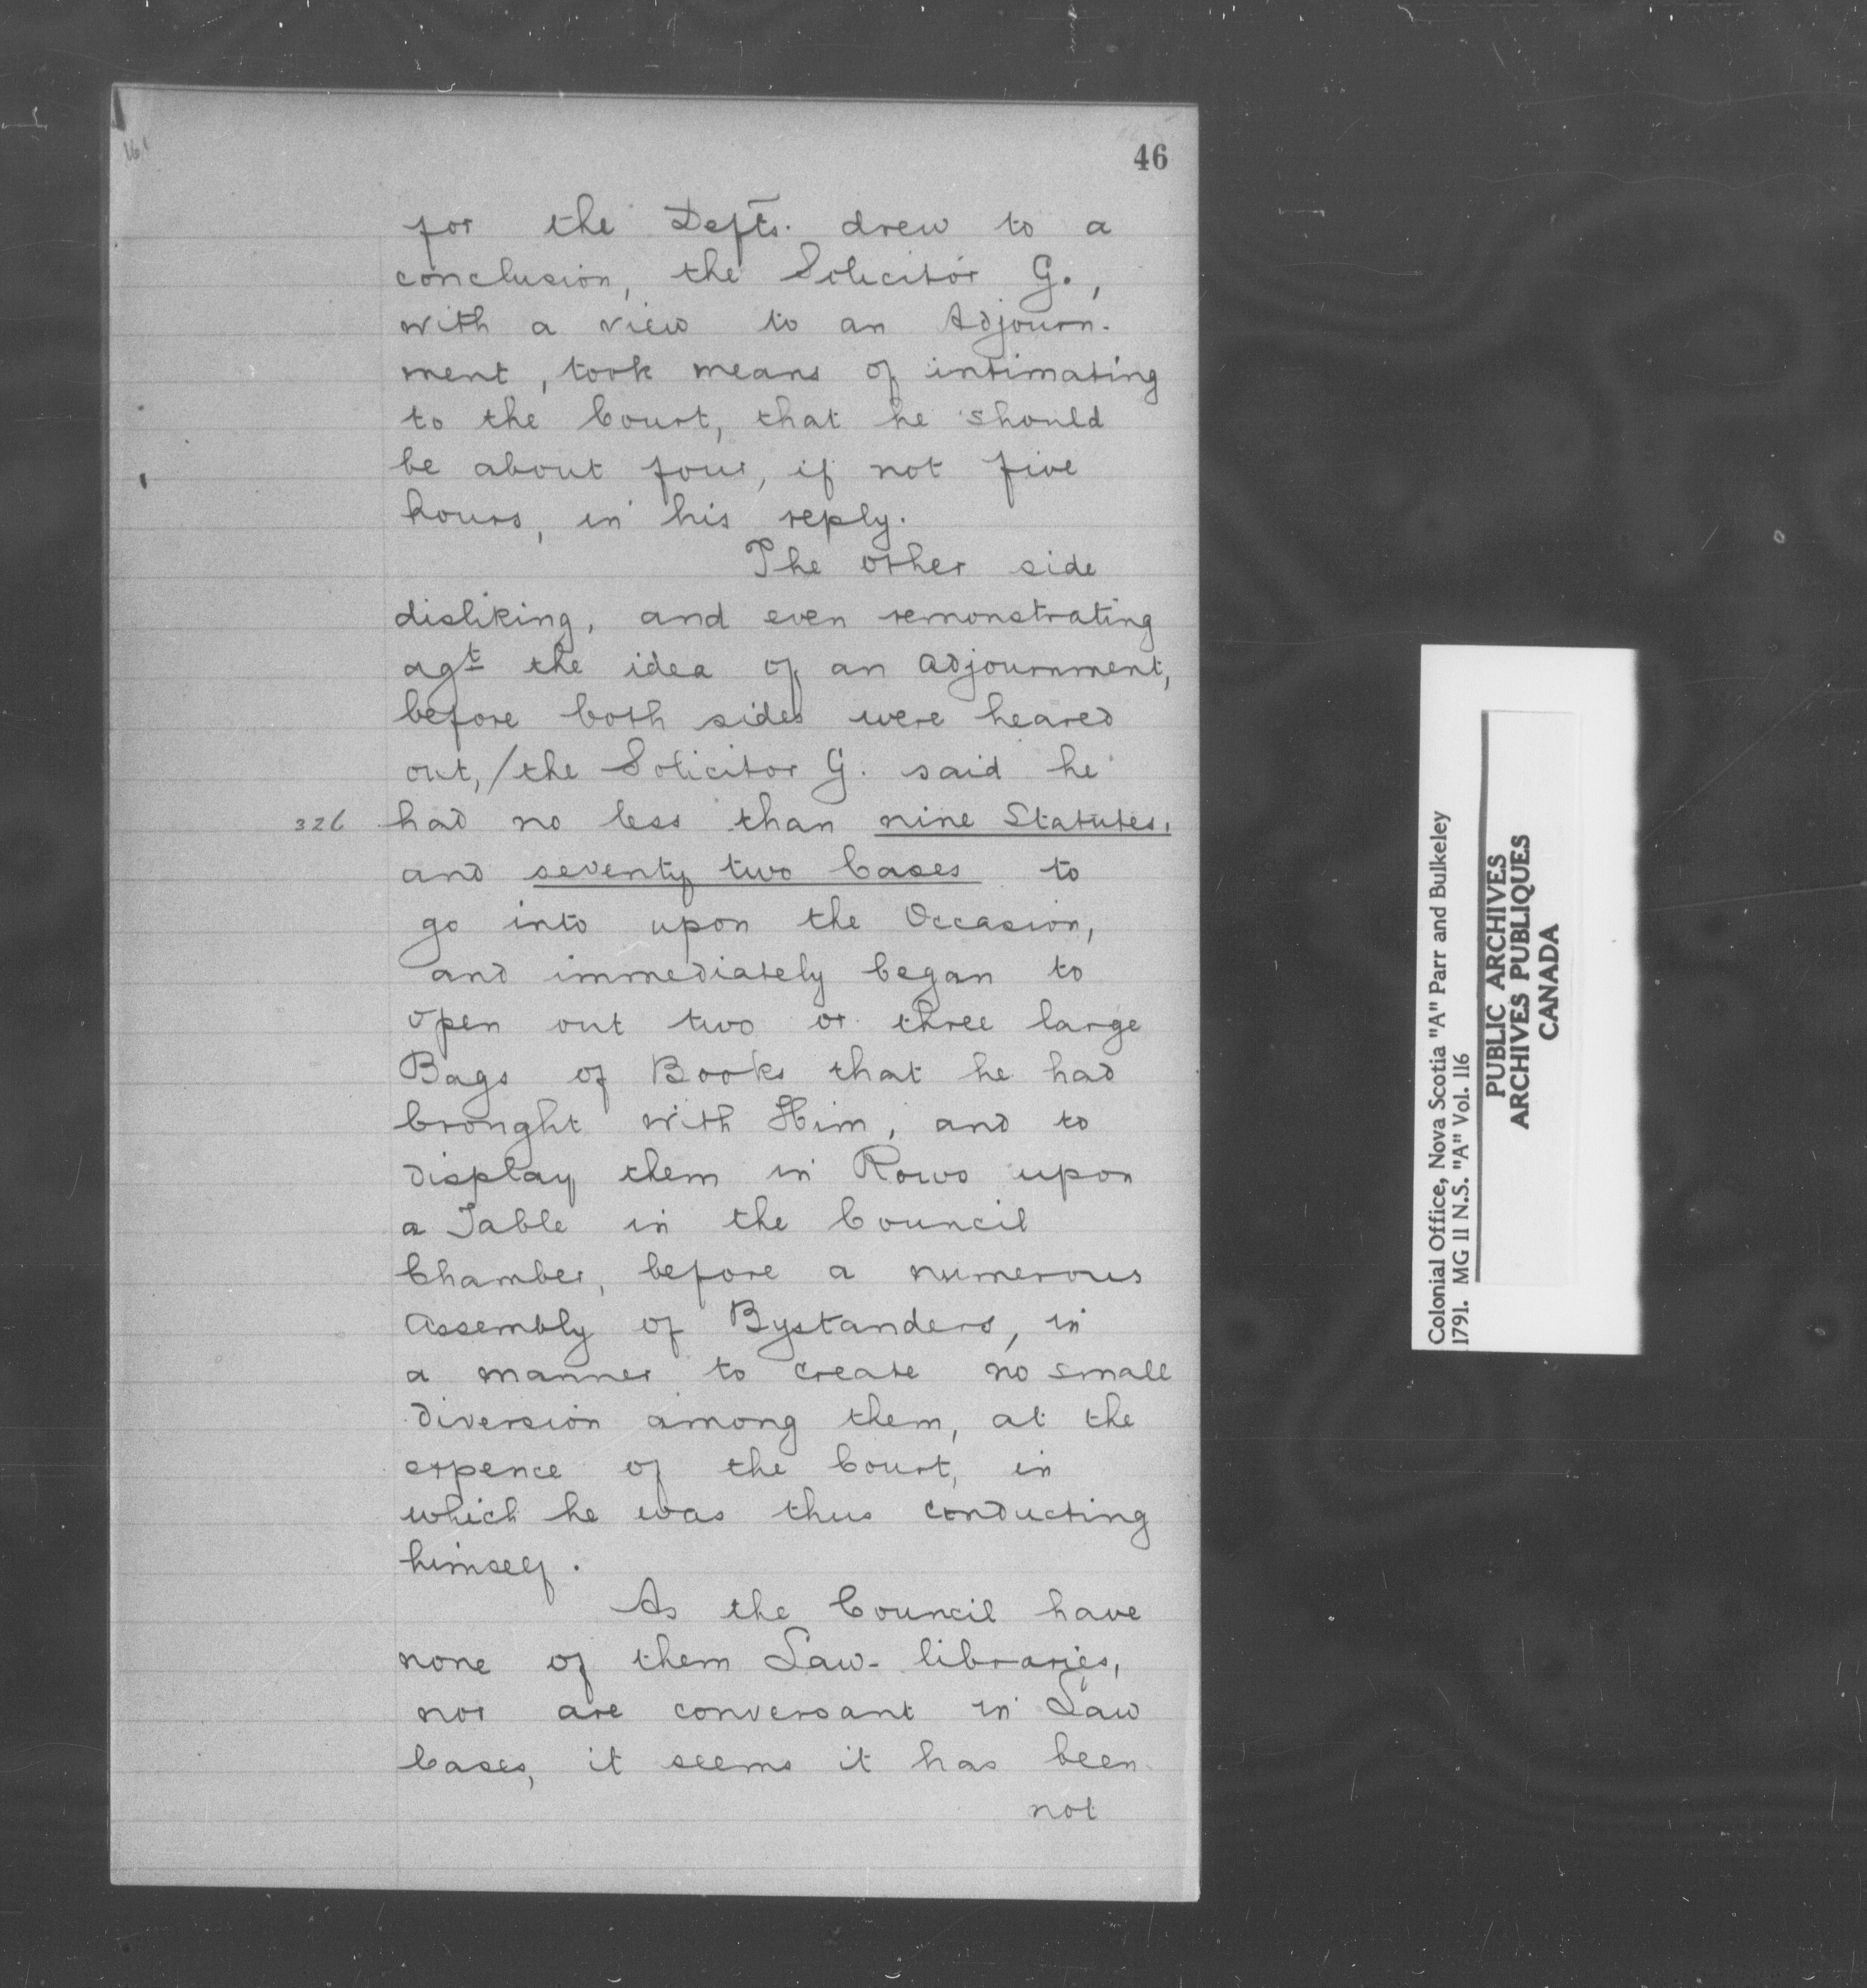 46
for the Defts. drew to a
conclusion, the Solicitor G.,
with a view to an Adjourn-
ment, took means of intimating
to the Court, that he should
be about four, if not five
hours, in his reply.
The other side
disliking, and even remonstrating
agt the idea of an adjournment,
before both sides were heared
out, / the Solicitor G. said he
326 had no less than nine Statutes,
and seventy two Cases to
go into upon the Occasion,
and immediately began to
open out two or three large
Bags of Books that he had
brought with Him, and to
display them in Rows upon
a Table in the Council
Chamber, before a numerous
Assembly of Bystanders, in
a manner to create no small
diversion among them, at the
expence of the Court, in
which he was thus conducting
himself.
As the Council have
none of them Law-libraries,
nor are conversant in Law
Cases, it seems it has been
not
Colonial Office, Nova Scotia "A" Parr and Bulkeley
1791. MG 11 N.S. "A" Vol. 116
PUBLIC ARCHIVES
ARCHIVES PUBLIQUES
CANADA